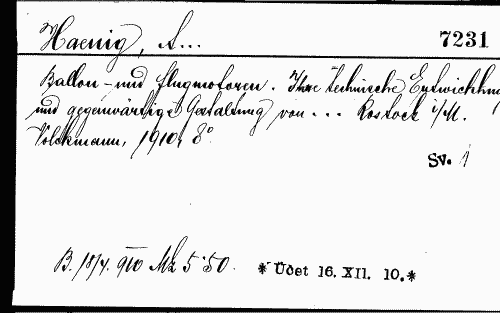 Haenig, A...
7231
Ballon- und Flugmotoren. Ihre technische Entwicklun
und gegenwärtige Gestaltung von ... Rostock i/M.
Volckmann, 1910, 8°
Sv. 1
B. 18/4. 910 Mk 5·50.
* Üdet 16. XII. 10. *